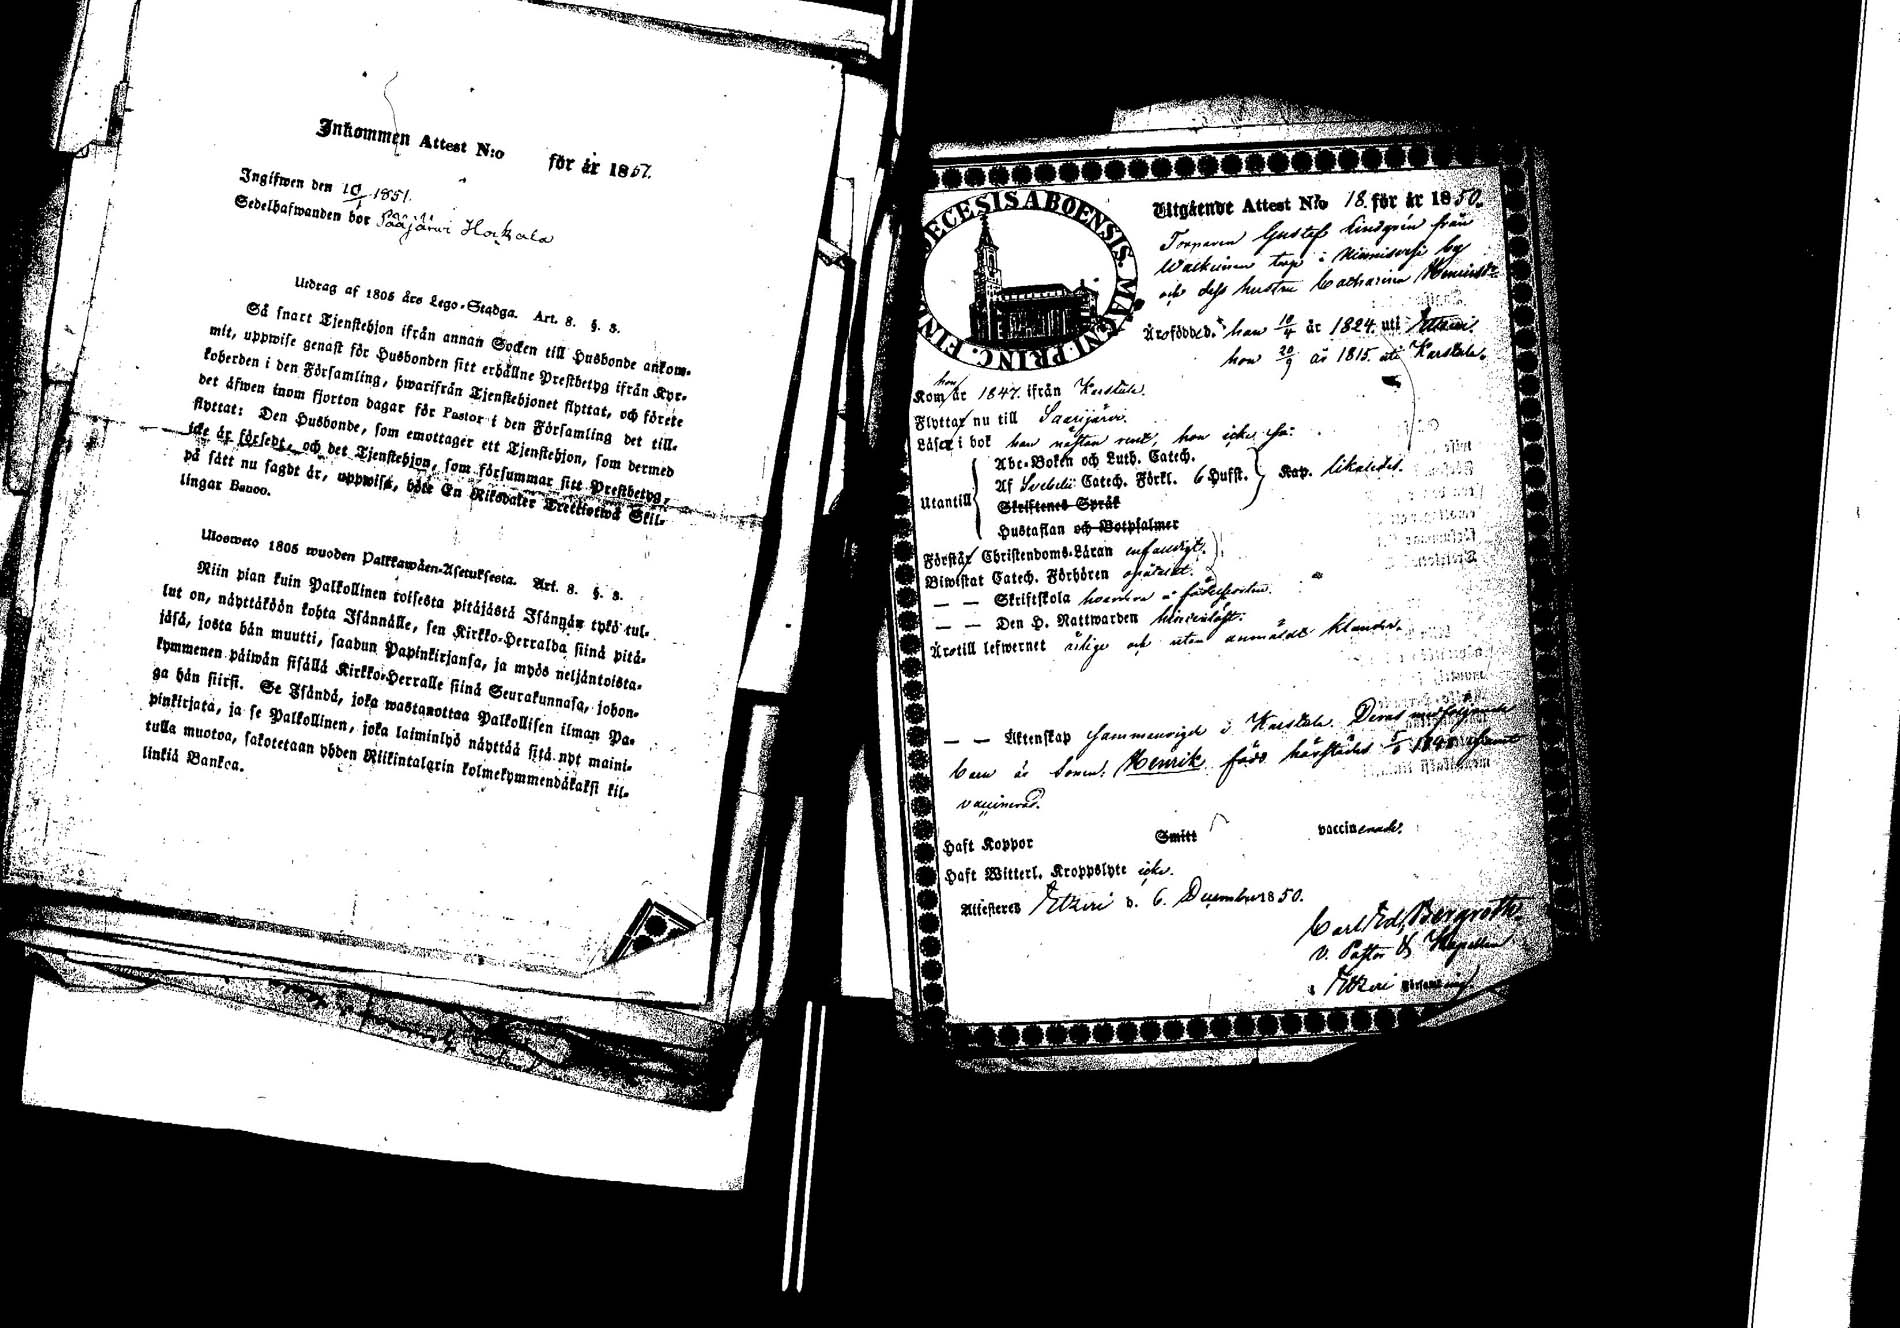 Inkommen Attest N:o för år 1851.
Ingifwen den 10/1 1851.
Sedelhafwanden bor Sääjärwi Hoikala
Utdrag af 1805 års Lego-Stadga. Art. 8. §. 3.
Så snart Tjenstehjon ifrån annan Socken till Husbonde ankom-
mit, uppwise genast för Husbonden sitt erhållne Prestbetyg ifrån Kyr-
koherden i den Församling, hwarifrån Tjenstehjonet flyttat, och förete
det äfwen inom fjorton dagar för Pastor i den Församling det till-
flyttat: Den Husbonde, som emottager ett Tjenstehjon, som dermed
icke är försedt, och det Tjenstehjon, som försummar sitt Prestbetyg,
på sätt nu sagdt är, uppwisa, böte En Riksdaler Trettiotwå Skil-
lingar Banco.
Ulosweto 1805 wuoden Palkkawäen-Asetuksesta. Art. 8. §. 3.
Niin pian kuin Palkollinen toisesta pitäjästä Isännän tykö tul-
lut on, näyttäköön kohta Isännälle, sen Kirkko-Herralda siinä pitä-
jäsä, josta hän muutti, saadun Papinkirjansa, ja myös neljäntoista-
kymmenen päiwän sisällä Kirkko-Herralle siinä Seurakunnasa, johon-
ga hän siirsi. Se Isändä, joka wastanottaa Palkollisen ilman Pa-
pinkirjata, ja se Palkollinen, joka laiminlyö näyttää sitä nyt maini-
tulla muotoa, sakotetaan yhden Riikintalarin kolmekymmendäkaksi kil-
linkiä Bankoa.
DECESIS ABOENSIS. MAGNI. PRINC. FINL
Utgående Attest N:o 18. för år 1850.
Torparen Gustaf Lindgrén från
torp i by
och dess hustru Catharina Henricsdr
Äro födde d. han 10/4 år 1824. uti Etzeri.
hon 20/9 år 1815. uti Karstula.
hon
Kom år 1847. ifrån Karstula.
Flyttar nu till Saarijärvi.
Läser i bok han nästan rent, hon icke så:
Utantill
Abc-Boken och Luth. Catech.
Af Svebelii Catech. Förkl. 6 Hufst. Kap. likaledes.
Skriftenes Språk
Hustaflan och Botpsalmer
Förstår Christendoms-Läran enfaldigt.
Biwistat Catech. Förhören
— — Skriftskola
— — Den H. Nattwarden
Äro till lefwernet ärlige och utan anmäldt klander.
— — Äktenskap sammanvigde i Karstula. Deras medföljande
barn är Sonen: Henrik född härstädes samt
vaccinerad.
Haft Koppor Smitt vaccinerade.
Haft Witterl. Kroppslyte icke.
Attesteres Etzeri d. 6. December 1850.
Carl Ed. Bergroth.
v. Pastor & Kapellan
i Etzeri Församling